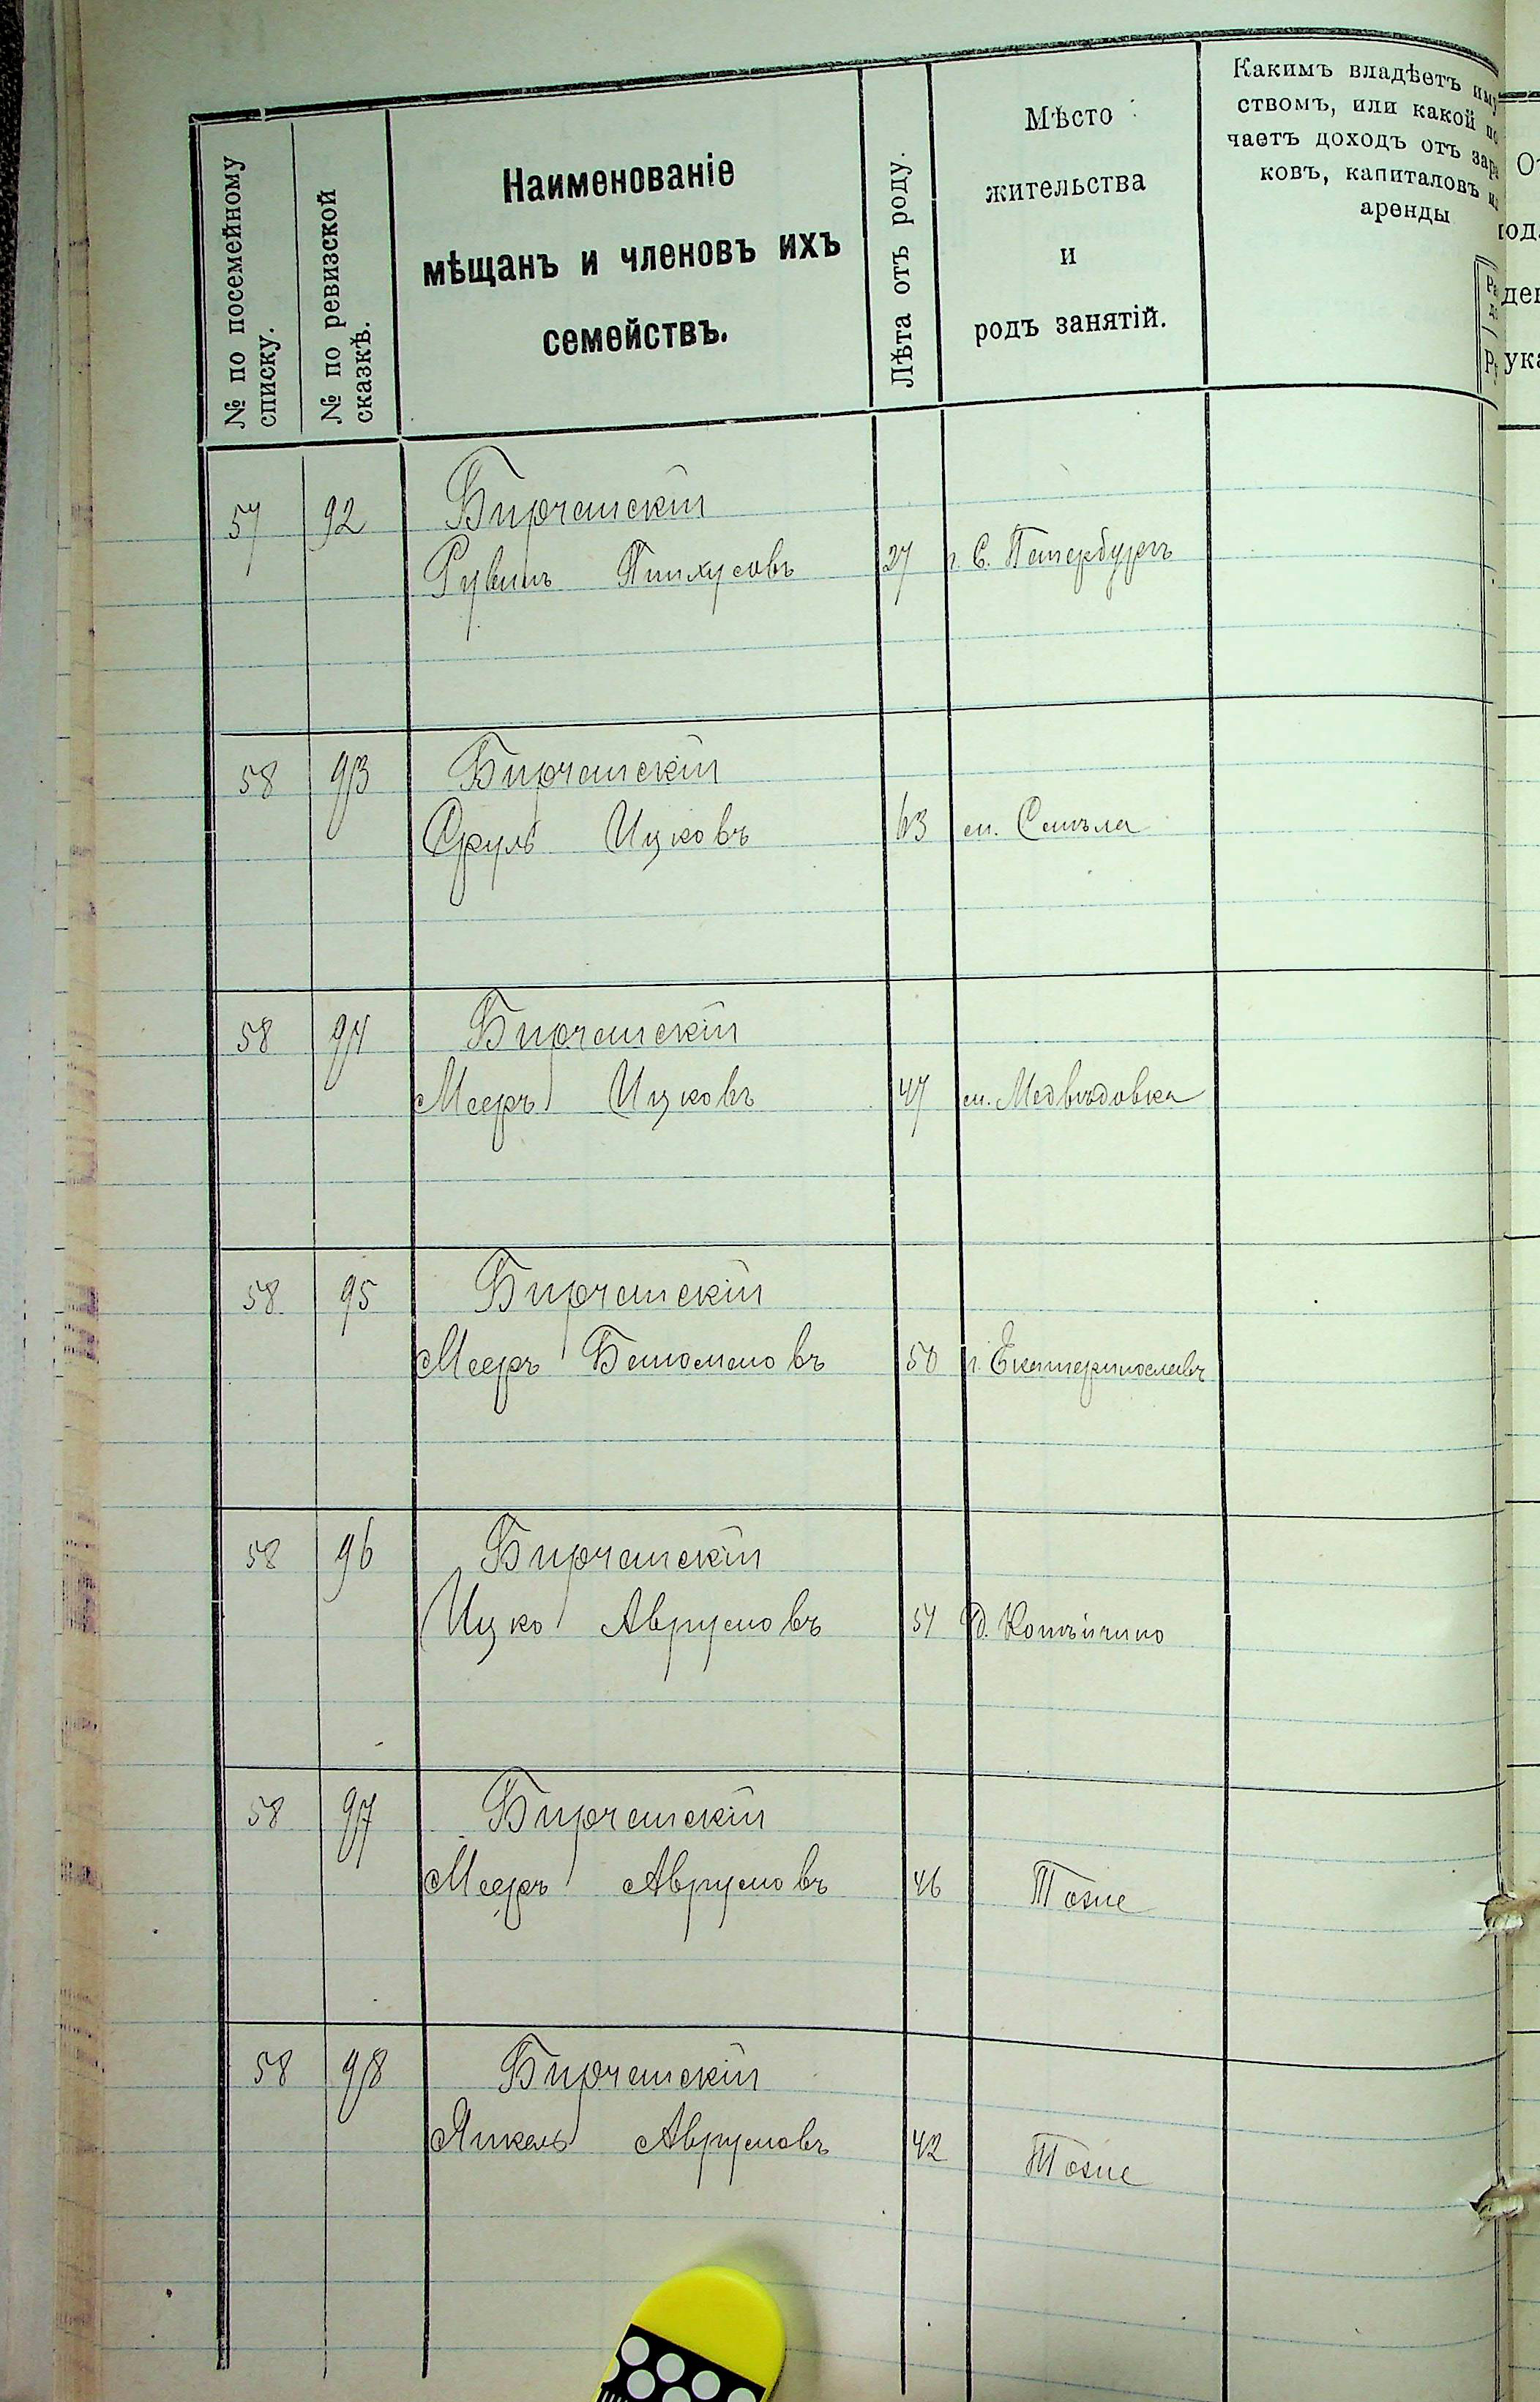 № по посемейному
списку.
№ по ревизской
сказкѣ.
Наименованіе
мѣщанъ и членовъ ихъ
семействъ.
Лѣта отъ роду.
Мѣсто
жительства
и
родъ занятій.
Какимъ владѣетъ
ствомъ, или какой
чаетъ доходъ отъ
ковъ, капиталовъ
аренды
57 92 Бирчанскій
Рувинъ Пинхусовъ 27 г. С. Петербургъ
58 93 Бирчанскій
Сруль Ицковъ 63 м. Смѣла
58 94 Бирчанскій
Мееръ Ицковъ 47 м. Медвѣдовка
58 95 Бирчанскій
Мееръ Беніоминовъ 50 г. Екатеринославъ
58 96 Бирчанскій
Ицко Аврумовъ 54 д.
58 97 Бирчанскій
Мееръ Аврумовъ 46 Тоже
58 98 Бирчанскій
Янкель Аврумовъ 42 Тоже